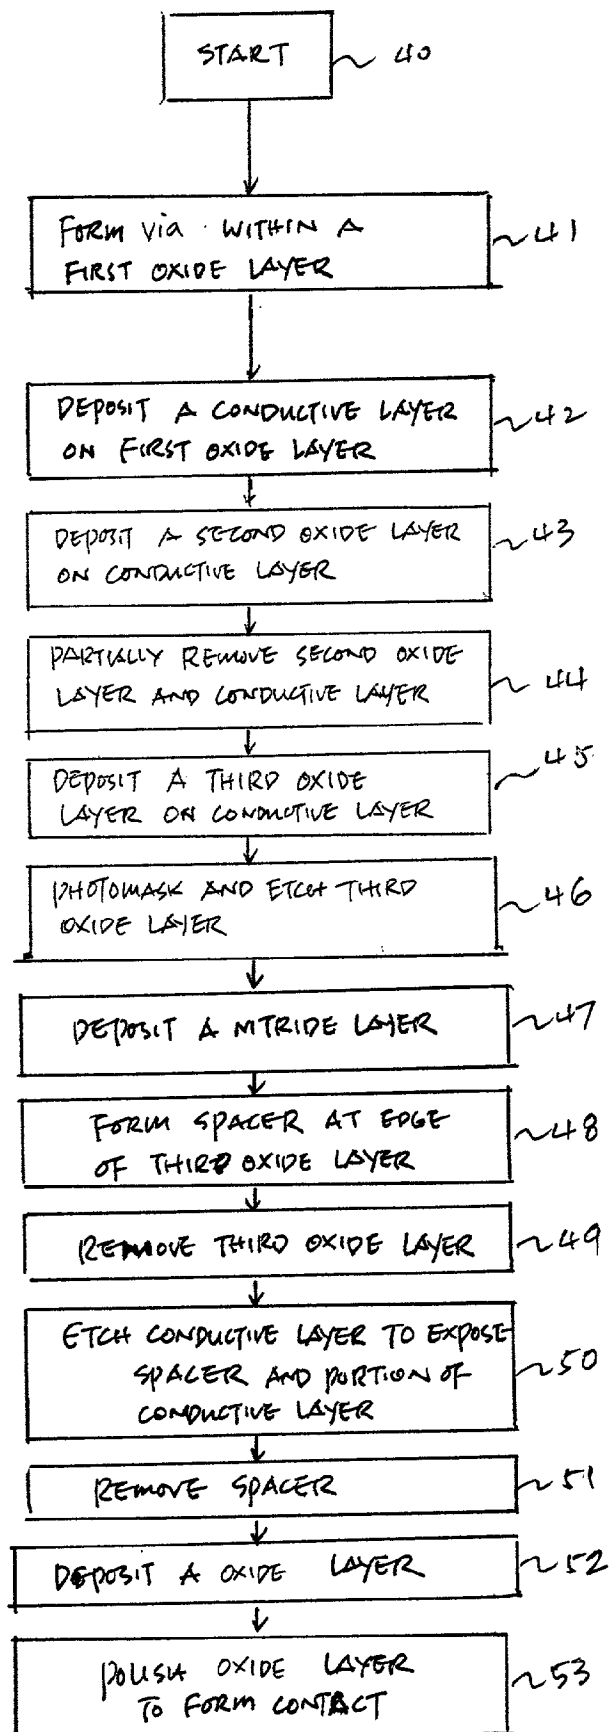 START
40
FORM via WITHIN A
FIRST OXIDE LAYER
41
DEPOSIT A CONDUCTIVE LAYER
ON FIRST OXIDE LAYER
42
DEPOSIT A SECOND OXIDE LAYER
ON CONDUCTIVE LAYER
43
PARTIALLY REMOVE SECOND OXIDE
LAYER AND CONDUCTIVE LAYER
44
DEPOSIT A THIRD OXIDE
LAYER ON CONDUCTIVE LAYER
45
PHOTOMASK AND ETCH THIRD
OXIDE LAYER
46
DEPOSIT A NITRIDE LAYER
47
FORM SPACER AT EDGE
OF THIRD OXIDE LAYER
48
REMOVE THIRD OXIDE LAYER
49
ETCH CONDUCTIVE LAYER TO EXPOSE
SPACER AND PORTION OF
CONDUCTIVE LAYER
50
REMOVE SPACER
51
DEPOSIT A OXIDE LAYER
52
POLISH OXIDE LAYER
TO FORM CONTACT
53